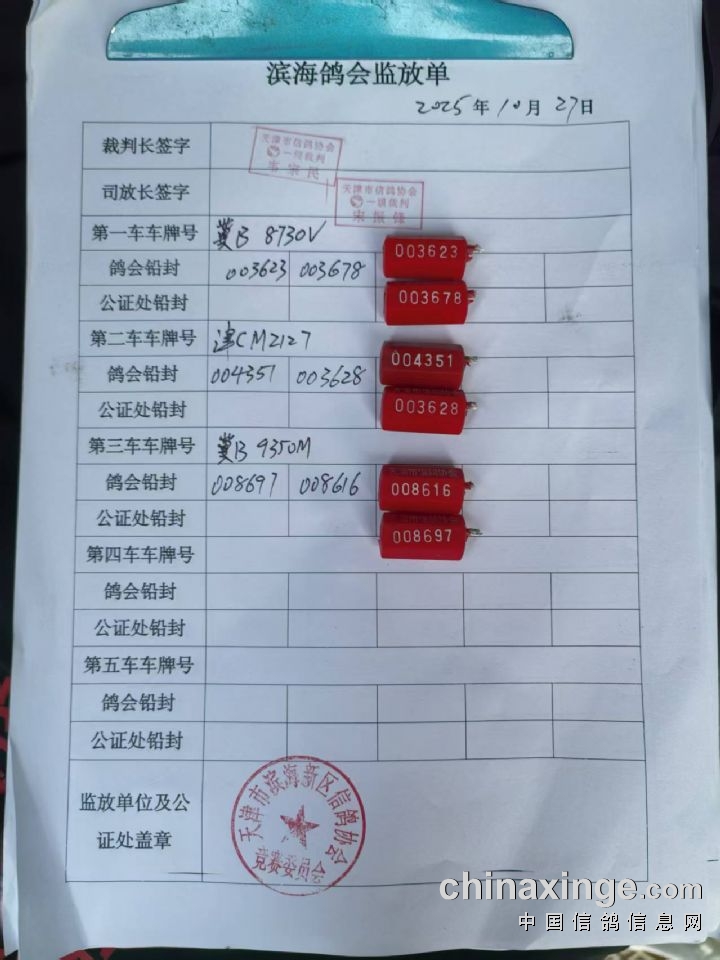 滨海鸽会监放单
2025年10月27日
裁判长签字
天津市信鸽协会
一级裁判
韦宗民
司放长签字
天津市信鸽协会
一级裁判
宋振锋
第一车车牌号 冀B 8730V
鸽会铅封 003623 003678
003623
公证处铅封
003678
第二车车牌号 津CM2127
鸽会铅封 004351 003628
004351
公证处铅封
003628
第三车车牌号 冀B 9350M
鸽会铅封 008697 008616
008616
公证处铅封
008697
第四车车牌号
鸽会铅封
公证处铅封
第五车车牌号
鸽会铅封
公证处铅封
监放单位及公
证处盖章
天津市滨海新区信鸽协会
竞赛委员会
chinaxinge.com
中国信鸽信息网